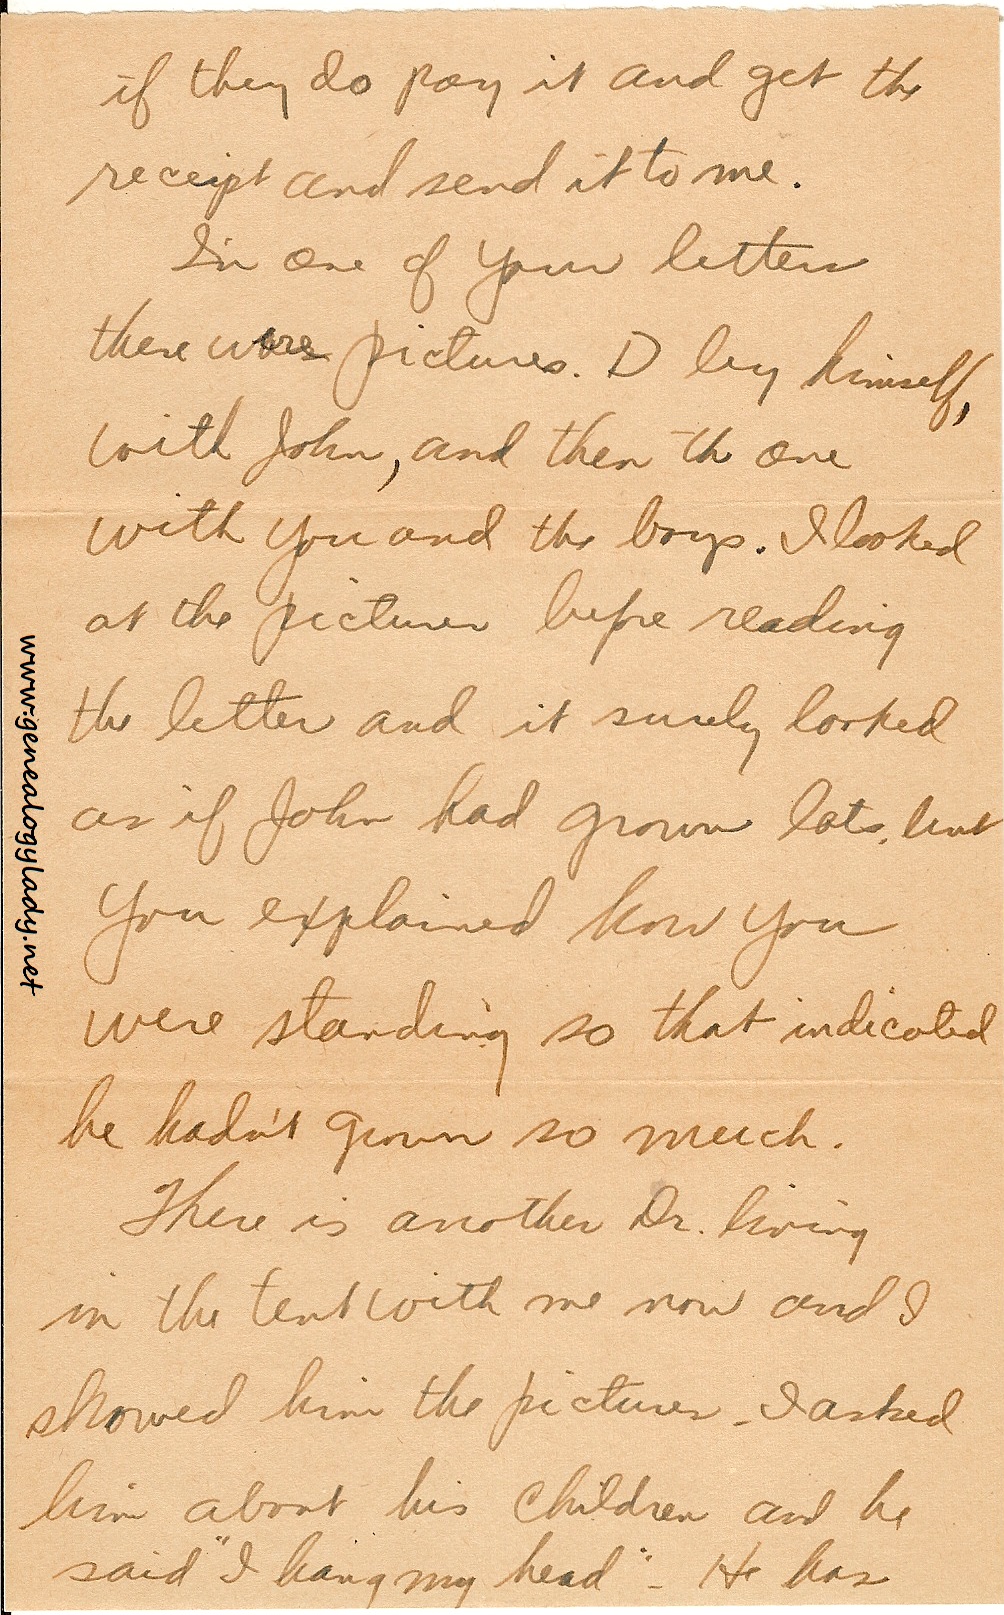 if they do pay it and get the
receipt and send it to me.
In one of your letters
there were pictures. D by himself,
with John, and then th one
with you and the boys. I looked
at the pictures before reading
the letter and it surely looked
as if John had grown lots, but
you explained how you
were standing so that indicated
he hadn't grown so much.
There is another Dr. living
in the tent with me now and I
showed him the pictures - I asked
him about his children and he
said "I hang my head" - He has
www.genealogylady.net